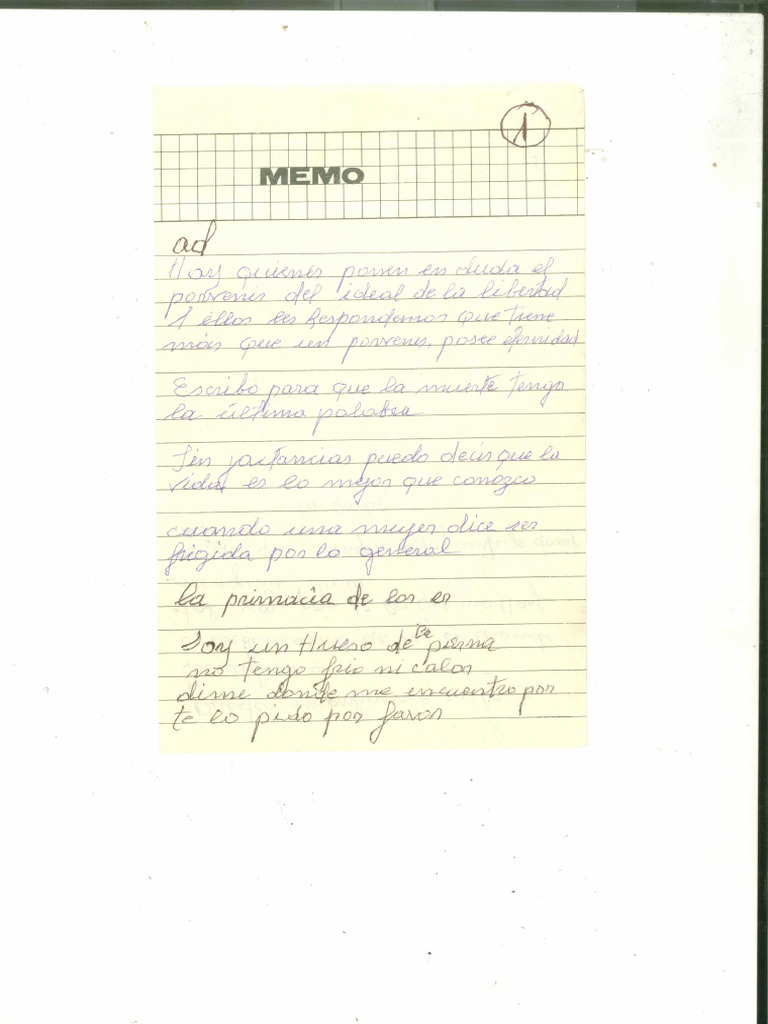 1
MEMO
ad
Hay quienes ponen en duda el
porvenir del ideal de la libertad
A ellos les Respondemos que tiene
más que un porvenir, posee eternidad
Escribo para que la muerte no tenga
la última palabra
Sin jactancias puedo decir que la
vida es lo mejor que conozco
cuando una mujer dice ser
frigida por lo general
la primacia de los er
Soy un Hueso de la pierna
no tengo frio ni calor
dime donde me encuentro por
te lo pido por favor